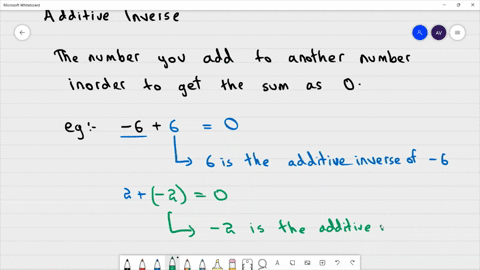 Microsoft Whiteboard
Additive Inverse
AV
The number you add to another number
inorder to get the sum as 0.
eg:- -6 + 6 = 0
6 is the additive inverse of -6
2 + (-2) = 0
-2 is the additive